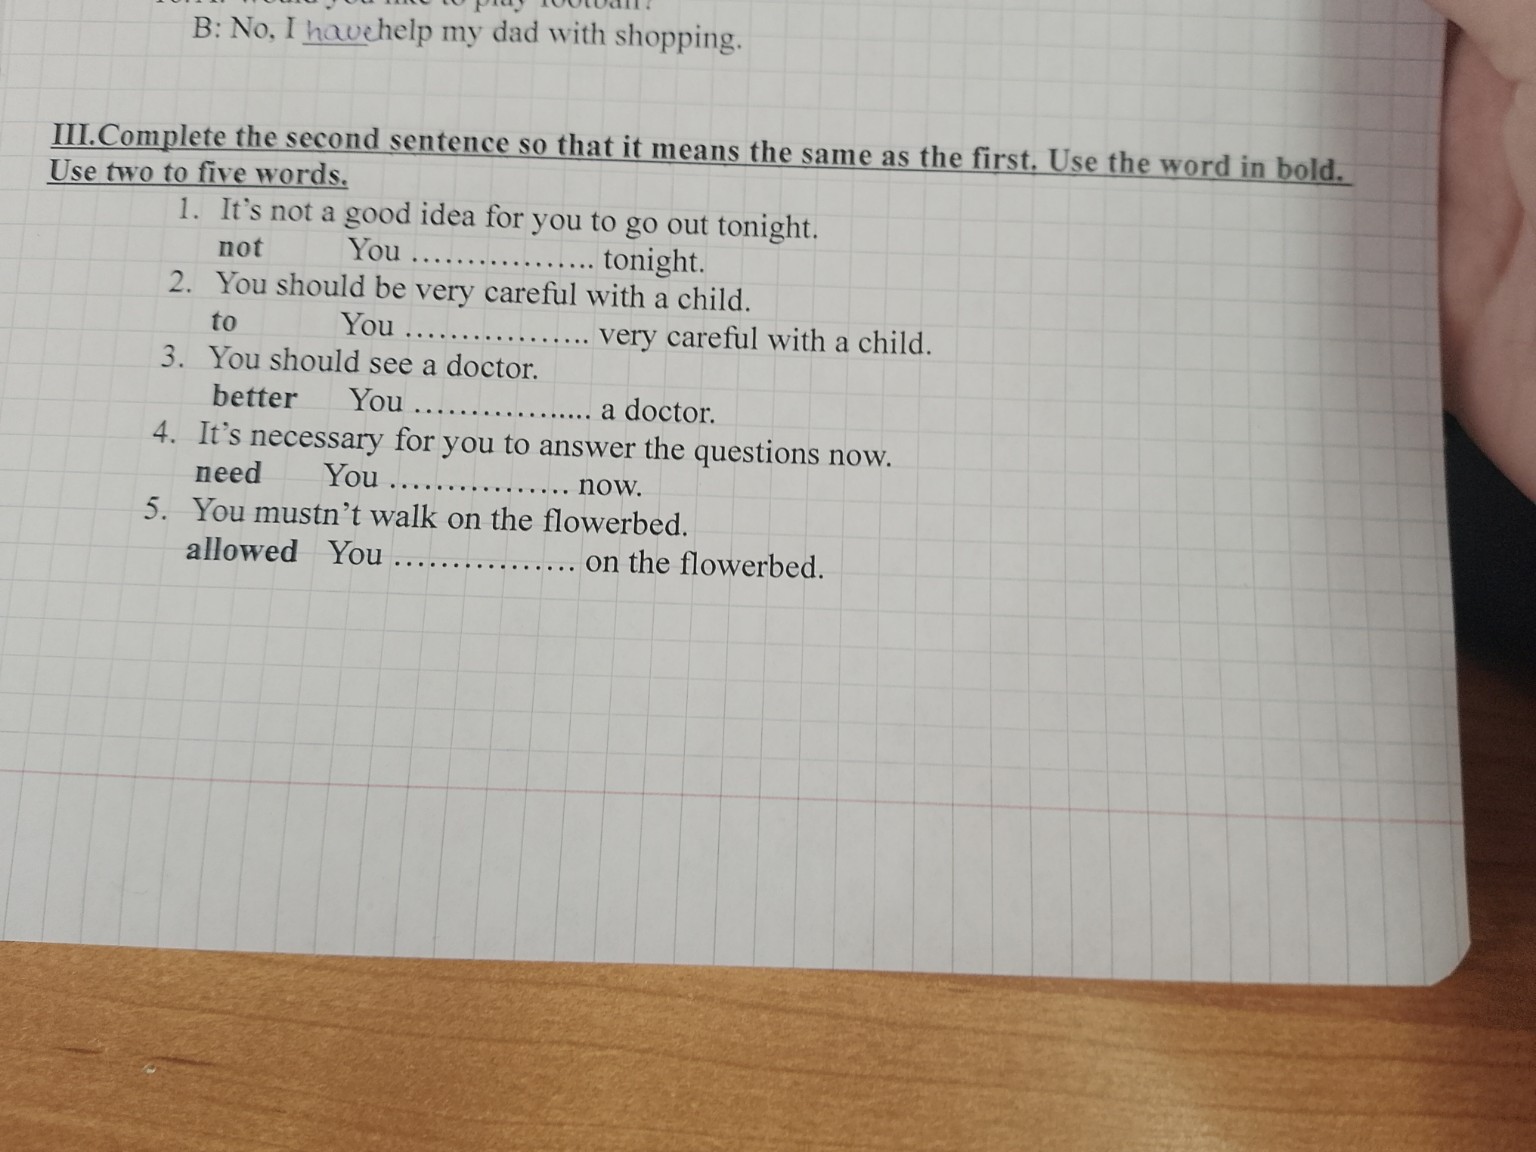 would you like to play football?
B: No, I have help my dad with shopping.
III.Complete the second sentence so that it means the same as the first. Use the word in bold.
Use two to five words.
1. It's not a good idea for you to go out tonight.
not You ................. tonight.
2. You should be very careful with a child.
to You ................. very careful with a child.
3. You should see a doctor.
better You ................. a doctor.
4. It's necessary for you to answer the questions now.
need You ................ now.
5. You mustn't walk on the flowerbed.
allowed You ................ on the flowerbed.